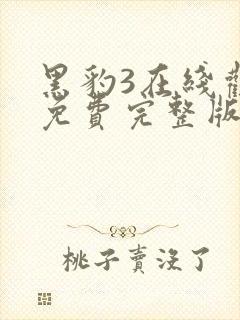 黑豹3在线
免費完整版
桃子賣沒了